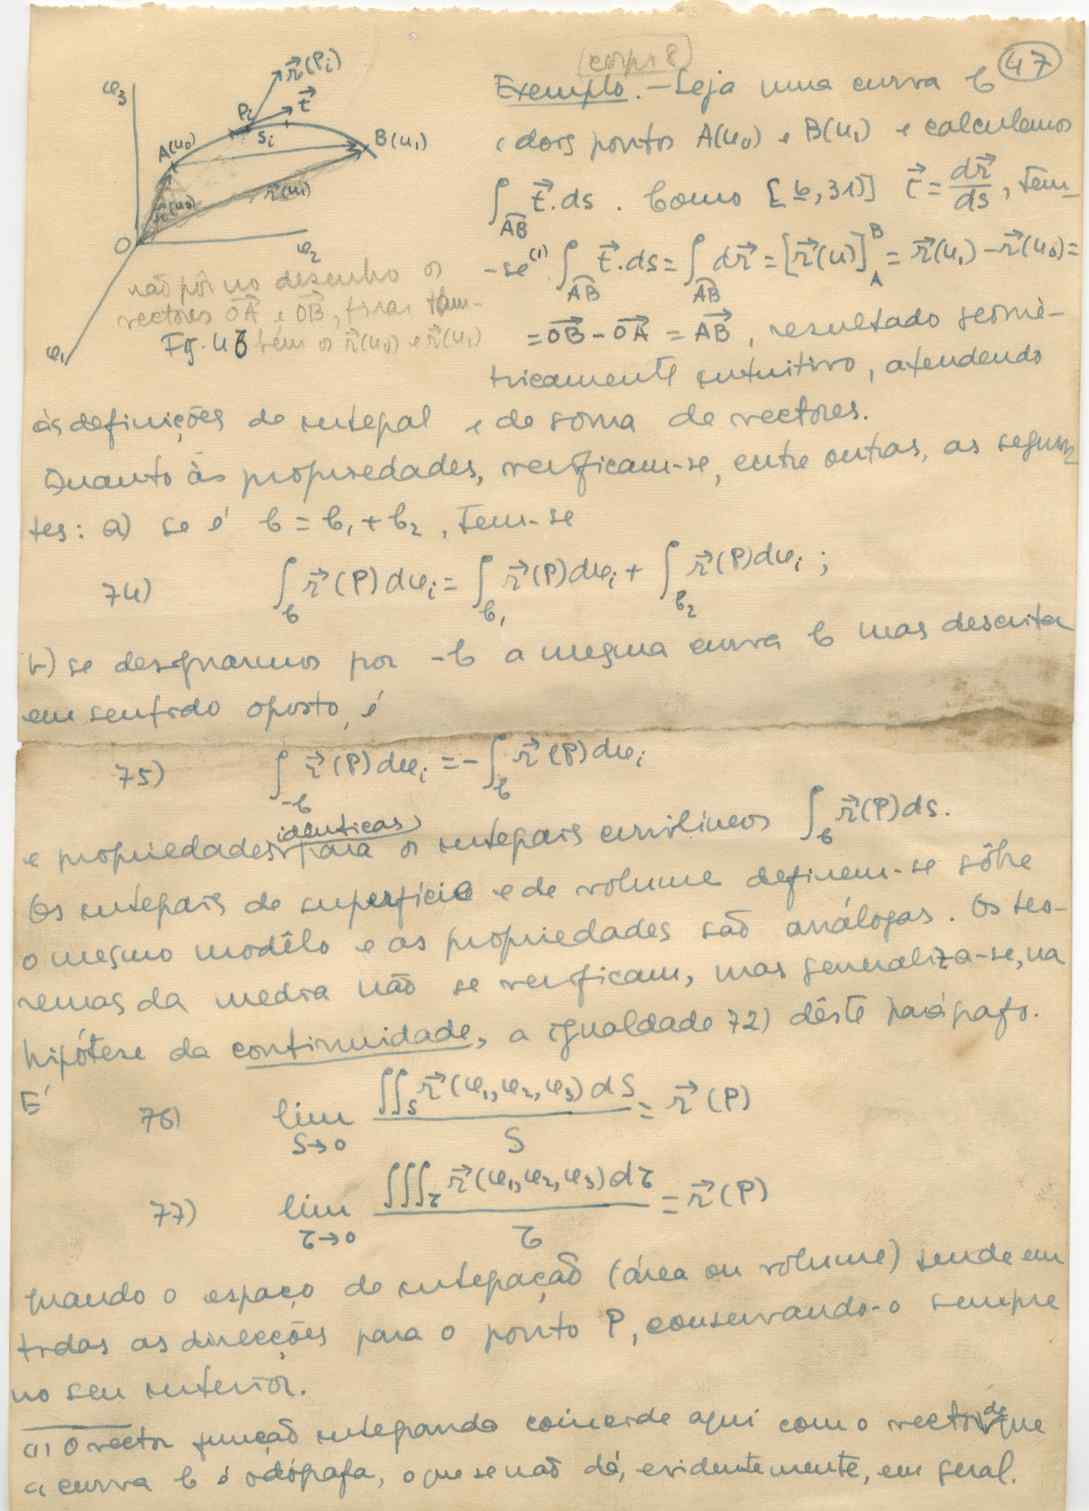 (corpo 8)
47
φ₃
r⃗(Pᵢ)
Pᵢ
t⃗
sᵢ
A(u₀)
B(u₁)
r⃗(u₀)
r⃗(u₁)
O
φ₂
φ₁
não pôr no desenho os
vectores OA⃗ e OB⃗, ficar tam-
bém os r⃗(u₀) e r⃗(u₁)
Fig. 48
Exemplo. — Seja uma curva C
e dois pontos A(u₀) e B(u₁) e calculemos
∫_AB t⃗.ds. Como [6, 31)] t⃗ = dr⃗/ds, tem-
-se⁽¹⁾ ∫_AB t⃗.ds = ∫_AB dr⃗ = [r⃗(u)]_A^B = r⃗(u₁) - r⃗(u₀) =
= OB⃗ - OA⃗ = AB⃗, resultado geomè-
tricamente intuitivo, atendendo
às definições de integral e de soma de vectores.
Quanto às propriedades, verificam-se, entre outras, as seguin-
tes: a) se é C = C₁ + C₂, tem-se
74) ∫_C r⃗(P)dφᵢ = ∫_C₁ r⃗(P)dφᵢ + ∫_C₂ r⃗(P)dφᵢ ;
b) se designarmos por -C a mesma curva C mas descrita
em sentido oposto, é
75) ∫_-C r⃗(P)dφᵢ = - ∫_C r⃗(P)dφᵢ
e propriedades idênticas para os integrais curvilíneos ∫_C r⃗(P)ds.
Os integrais de superfície e de volume definem-se sôbre
o mesmo modêlo e as propriedades são análogas. Os teo-
remas da média não se verificam, mas generaliza-se, na
hipótese da continuidade, a igualdade 72) dêste parágrafo.
É
76) lim_S→0 ∬_S r⃗(φ₁,φ₂,φ₃)dS / S = r⃗(P)
77) lim_τ→0 ∭_τ r⃗(φ₁,φ₂,φ₃)dτ / τ = r⃗(P)
quando o espaço de integração (área ou volume) tende em
todas as direcções para o ponto P, conservando-o sempre
no seu interior.
(1) O vector função integranda coincide aqui com o vector de que
a curva C é odógrafa, o que se não dá, evidentemente, em geral.